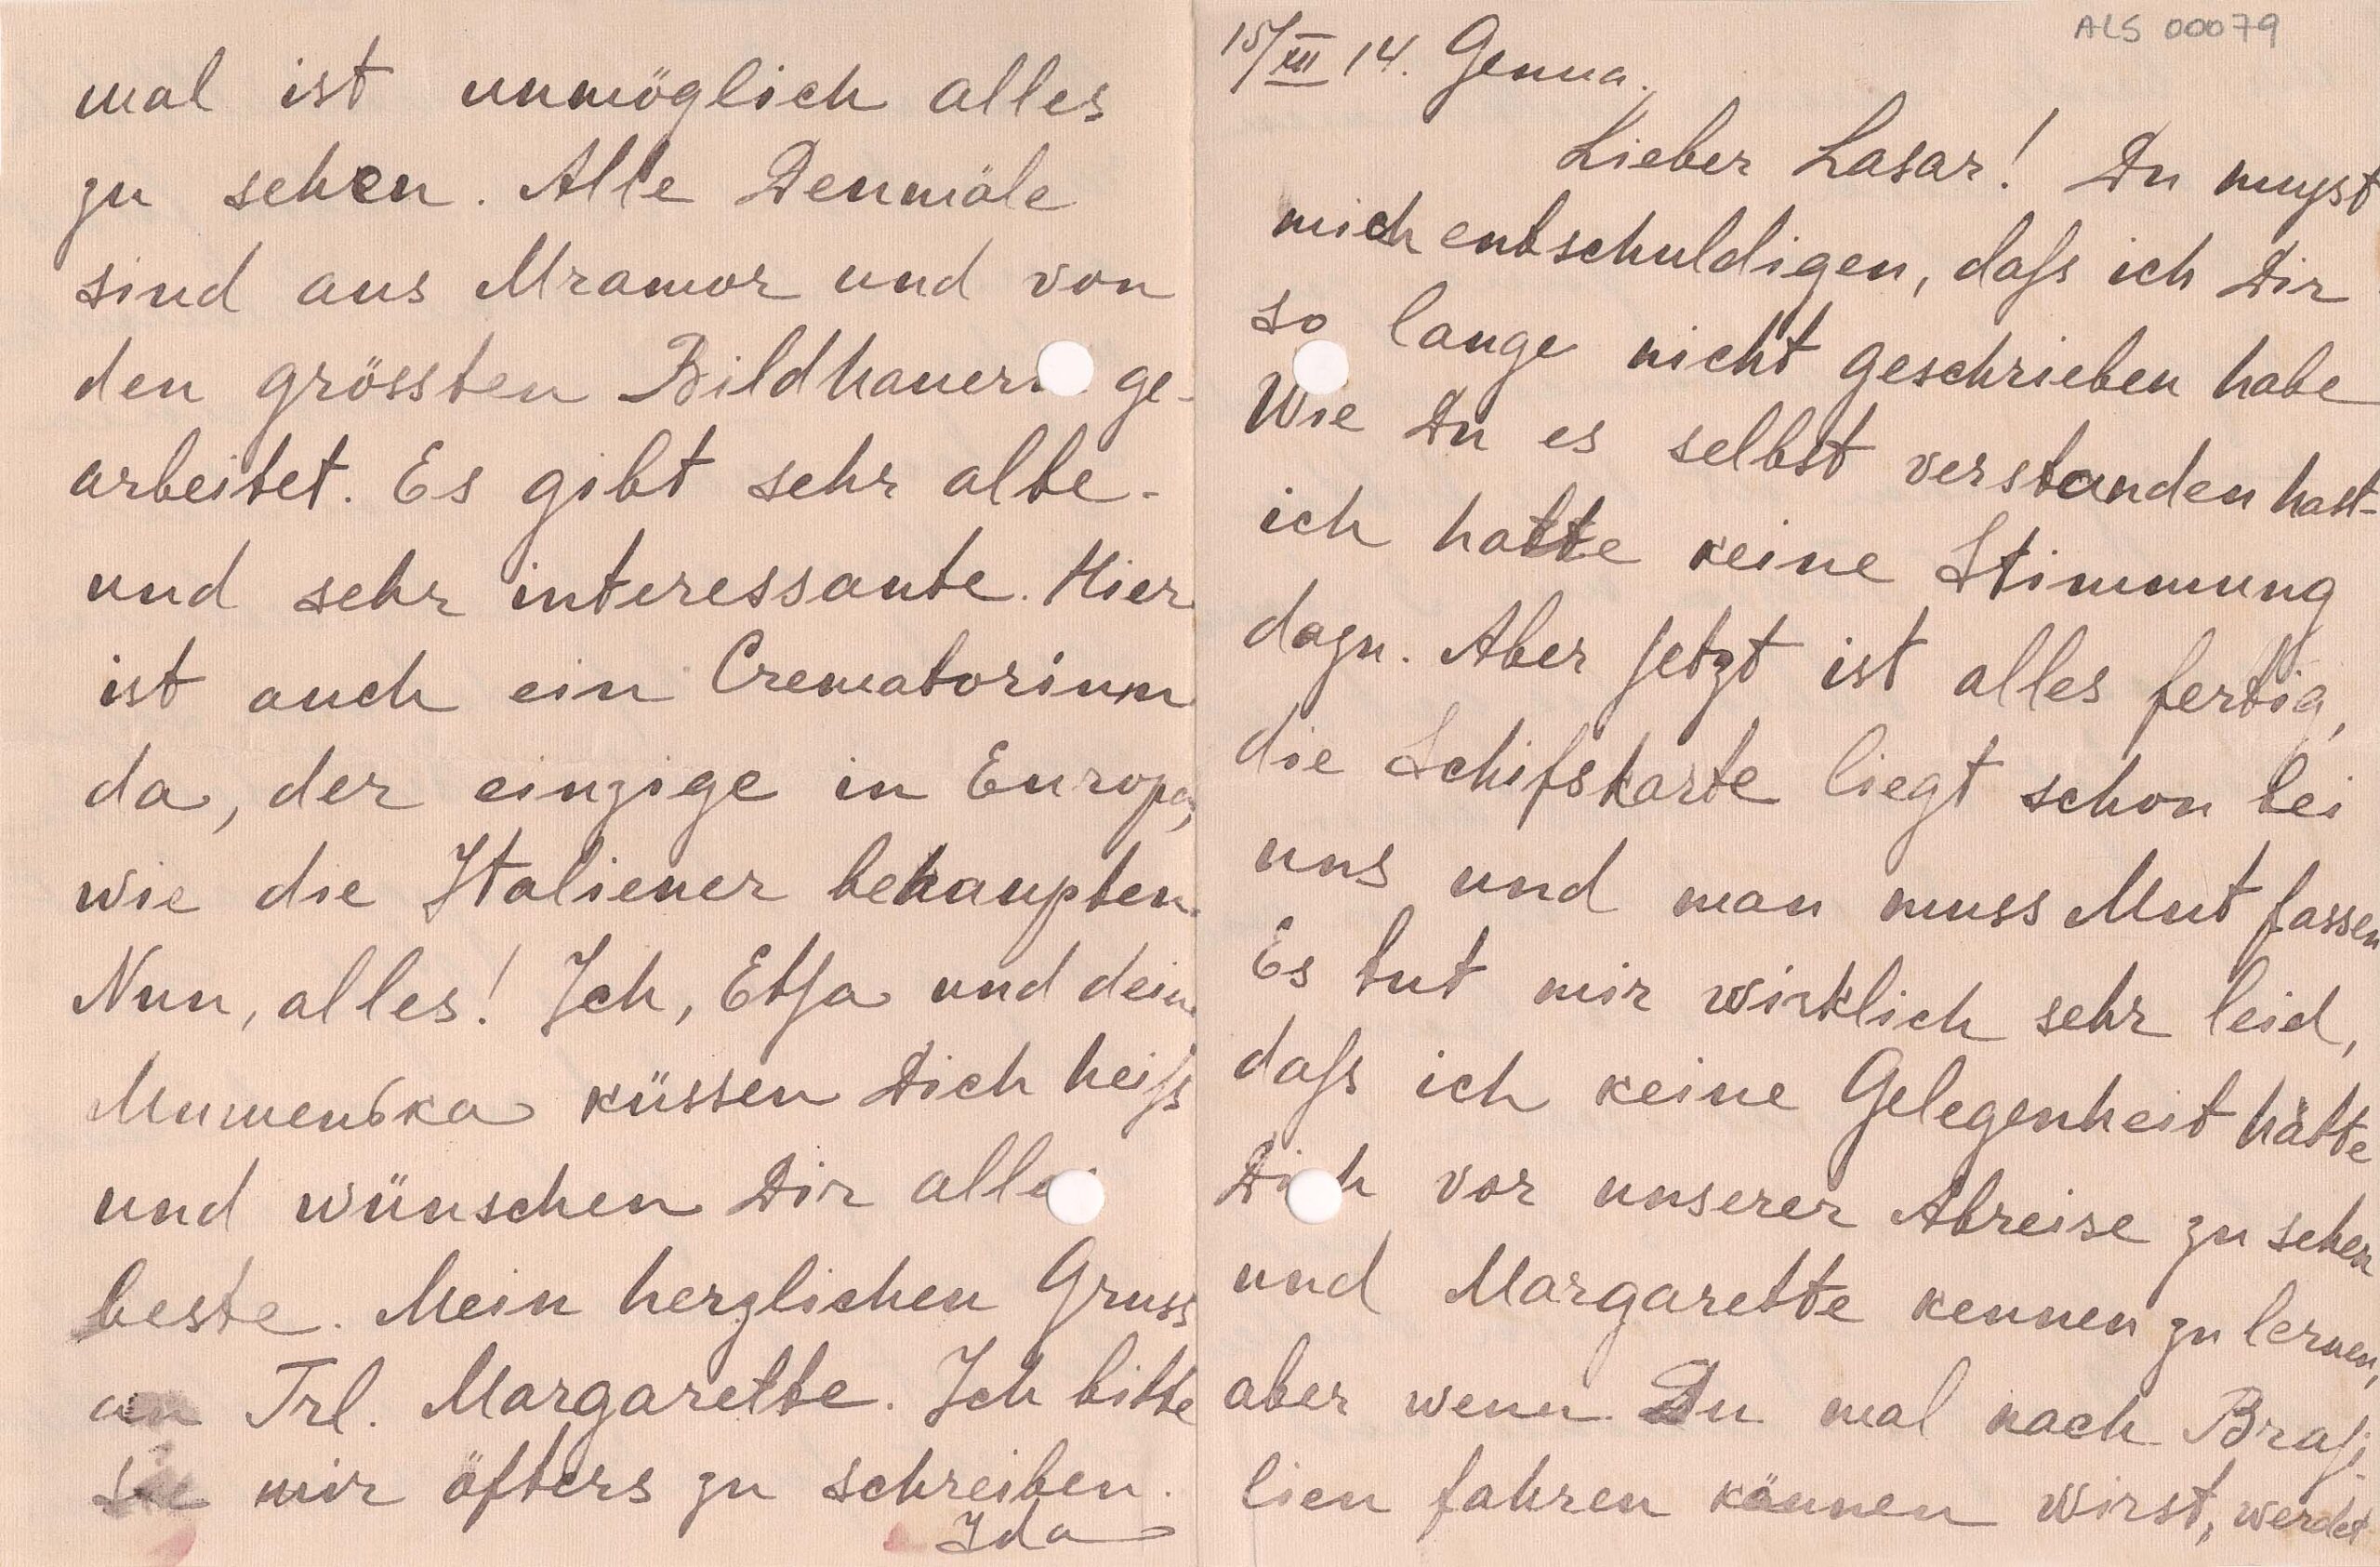 mal ist unmöglich alles
zu sehen. Alle Denmäle
sind aus Mramor und von
den grössten Bildhauern ge-
arbeitet. Es gibt sehr alte-
und sehr interessante. Hier
ist auch ein Crematorium
da, der einzige in Europa,
wie die Italiener behaupten.
Nun, alles! Ich, Etja und dein
küssen Dich heiß
und wünschen Dir alles
beste. Mein herzlichen Gruss
an Frl. Margarette. Ich bitte
Sie mir öfters zu schreiben.
Ida
ALS 00079
15/III 14. Genua.
Lieber Lasar! Du muyst
mich entschuldigen, daß ich Dir
so lange nicht geschrieben habe
Wie Du es selbst verstanden hast-
ich hatte keine Stimmung
dazu. Aber jetzt ist alles fertig,
die Schifskarte liegt schon bei
uns und man muss Mut fassen
Es tut mir wirklich sehr leid,
daß ich keine Gelegenheit hätte
Dich vor unserer Abreise zu sehen
und Margarette kennen zu lernen,
aber wenn Du mal nach Brasi-
lien fahren können wirst, werdet